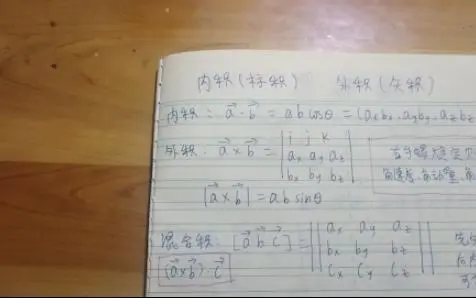 内积（标积） 外积（矢积）
内积：a⃗·b⃗ = ab cosθ = (axbx, ayby, azbz
外积：a⃗×b⃗ = | i j k |
| ax ay az |
| bx by bz |
右手螺旋定则
角速度,角动量,
|a⃗×b⃗| = ab sinθ
混合积：[a⃗ b⃗ c⃗] = || ax ay az ||
|| bx by bz ||
|| cx cy cz ||
(a⃗×b⃗)·c⃗